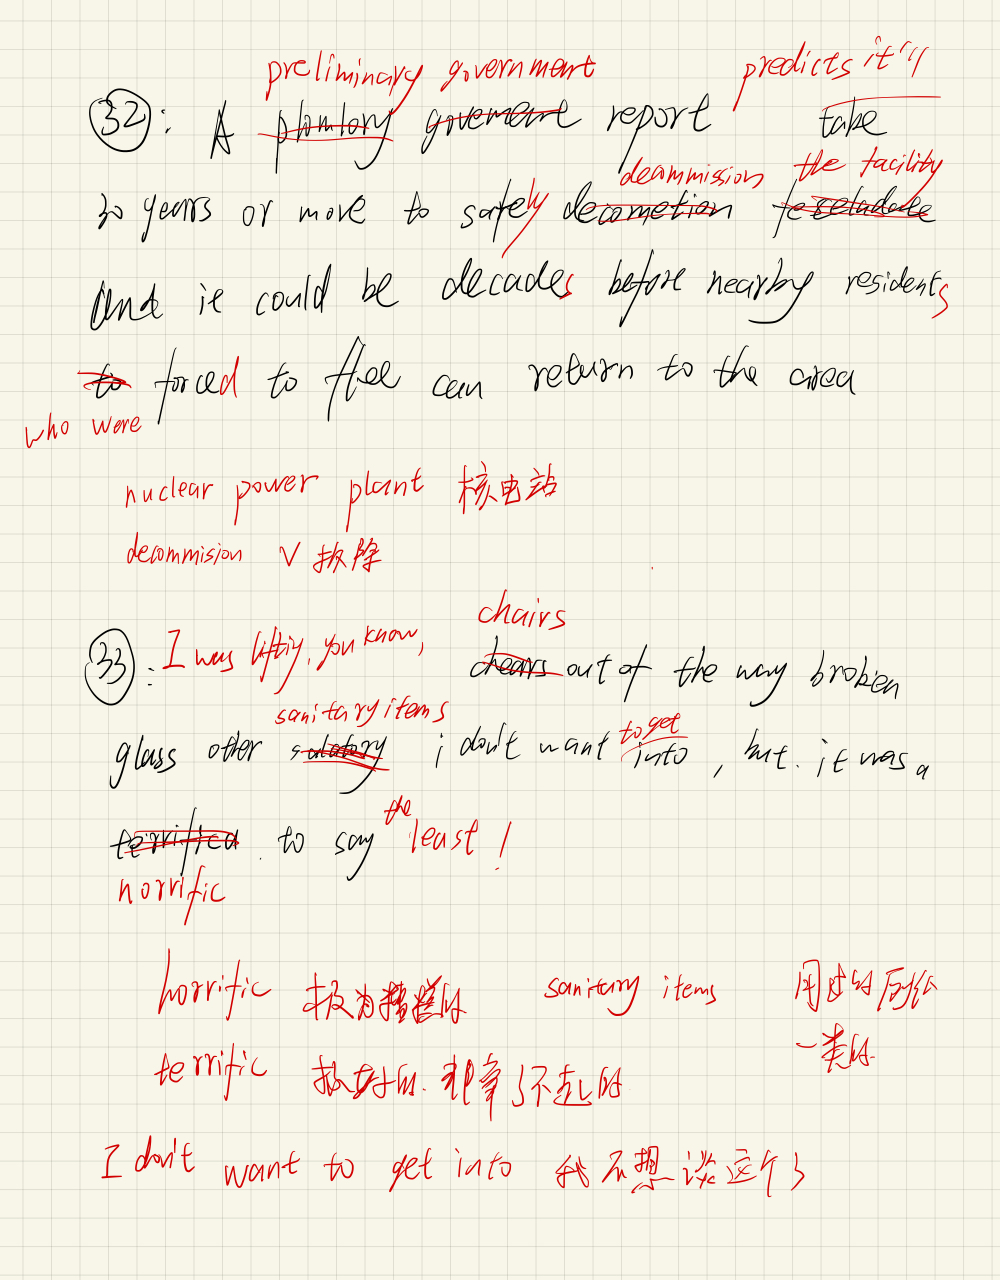 preliminary government predicts it'll
32: A plomlory govement report take
decommission the facility
30 years or more to safely decometion
and it could be decades before nearby residents
to forced to flee can return to the area
who were
nuclear power plant 核电站
decommision V 拆除
chairs
33: I was liftiy, you know, chears out of the way broken
sanitary items to get
glass other salatory i don't want into, but. it was a
the
terrified to say least!
horrific
horrific 极为糟糕的 sanitary items 用过的厕纸
一类的.
terrific 极好的. 非常了不起的
I don't want to get into 我不想谈这个了